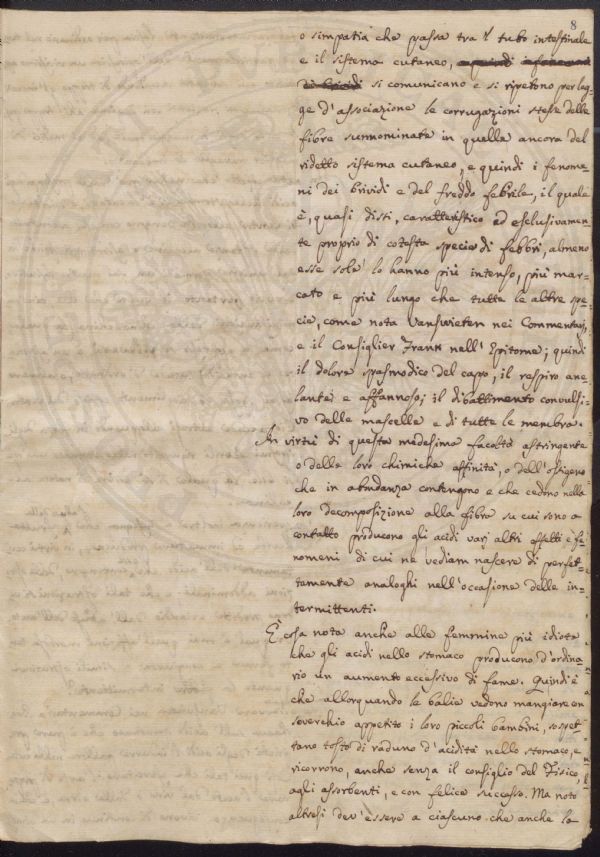 8
o simpatia che passa tra 'l tubo intestinale
e il sistema cutaneo, e quindi i fenomeni
dei brividi si comunicano e si ripetono per leg-
ge d'associazione le corrugazioni stesse delle
fibre sunnominate in quelle ancora del
ridetto sistema cutaneo, e quindi i fenome-
ni dei brividi e del freddo febrile, il quale
è, quasi dissi, caratteristico ed esclusivamen-
te proprio di cotesta specie di febbri, almeno
esse sole lo hanno più intenso, più mar-
cato e più lungo che tutte le altre spe-
cie, come nota Vanswieten nei Commentarj,
e il Consiglier Frank nell'Epitome; quindi
il dolore spasmodico del capo, il respiro ane-
lante e affannoso; il dibattimento convulsi-
vo delle mascelle e di tutte le membra.
In virtù di questa medesima facoltà astringente
o delle loro chimiche affinità, o dell'ossigeno
che in abbndanza contengono e che cedono nella
loro decomposizione alla fibra su cui sono a
contatto producono gli acidi varj altri effetti e fe-
nomeni di cui ne vediam nascere di perfet-
tamente analoghi nell'occasione delle in-
termittenti.
È cosa nota anche alle femmine più idiote
che gli acidi nello stomaco producono d'ordina-
rio un aumento eccessivo di fame. Quindi è
che allorquando le balie vedono mangiare con
soverchio appetito i loro piccoli bambini, sospet-
tano tosto di raduno d'acidità nello stomaco, e
ricorrono, anche senza il consiglio del Fisico,
agli assorbenti, e con felice successo. Ma noto
altresì dev'essere a ciascuno che anche la